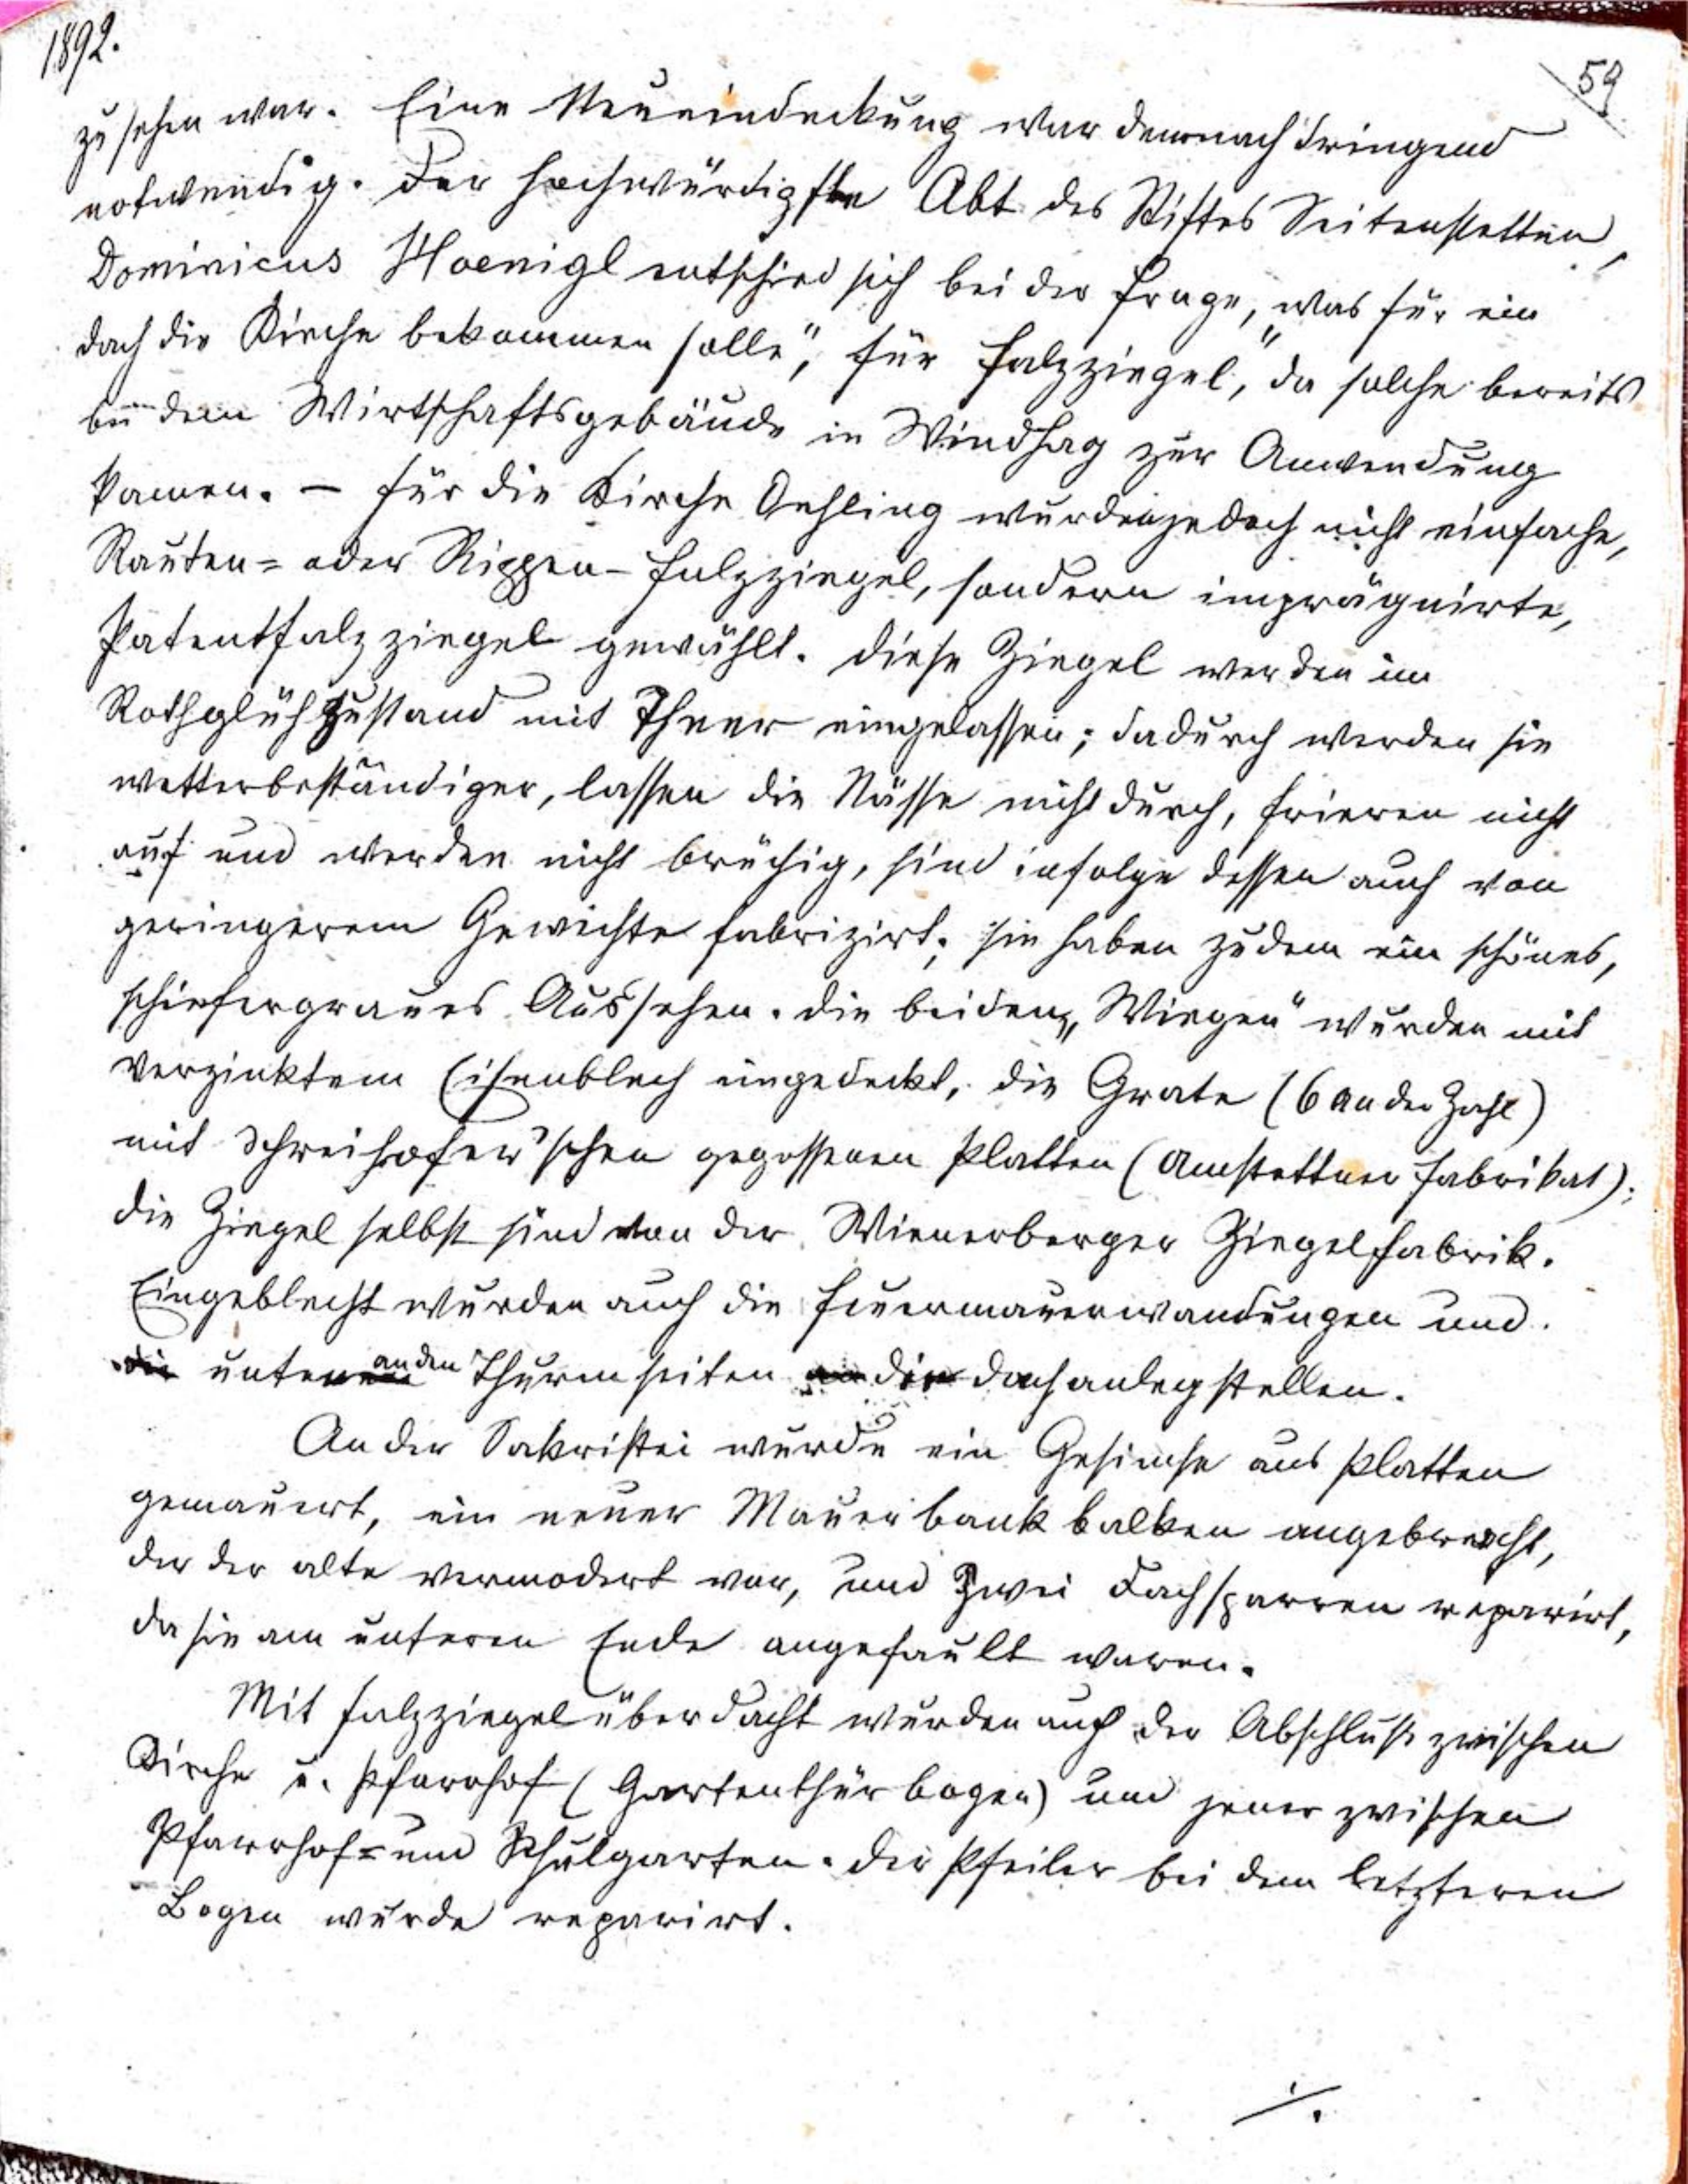 1892.
59
zu sehen war. Eine Neueindeckung war demnach dringend
notwendig. Der hochwürdigste Abt des Stiftes Seitenstetten,
Dominicus Hoenigl entschied sich bei der Frage, was für ein
Dach die Kirche bekommen solle", für Falzziegel," da solche bereits
bei dem Wirtschaftsgebäude in Windhag zur Anwendung
kamen. – Für die Kirche Oehling wurden jedoch nicht einfache,
Rauten= oder Rippen-Falzziegel, sondern imprägnirte,
Patentfalzziegel gewählt. Diese Ziegel werden im
Rothglühzustand mit Theer eingelassen; dadurch werden sie
wetterbeständiger, lassen die Nässe nicht durch, frieren nicht
auf und werden nicht brüchig, sind infolge dessen auch von
geringerem Gewichte fabrizirt; sie haben zudem ein schönes,
schiefergraues Aussehen. Die beiden „Wiegen" wurden mit
verzinktem Eisenblech eingedeckt, die Grate (6 an der Zahl)
mit Schreihofer'schen gegossenen Platten (Amstettner Fabrikat);
die Ziegel selbst sind von der Wienerberger Ziegelfabrik.
Eingeblecht wurden auch die Feuermauerwandungen und
die unten an den Thurmseiten an die Dachanlegstellen.
An der Sakristei wurde ein Gesimse aus Platten
gemauert, ein neuer Mauerbankbalken angebracht,
der der alte vermodert war, und zwei Dachsparren reparirt,
da sie am unteren Ende angefault waren.
Mit Falzziegel überdacht wurden auch der Abschluß zwischen
Kirche u. Pfarrhof (Gartenthürbogen) und jener zwischen
Pfarrhof= und Schulgarten. Der Pfeiler bei dem letzteren
Bogen wurde reparirt.
./.